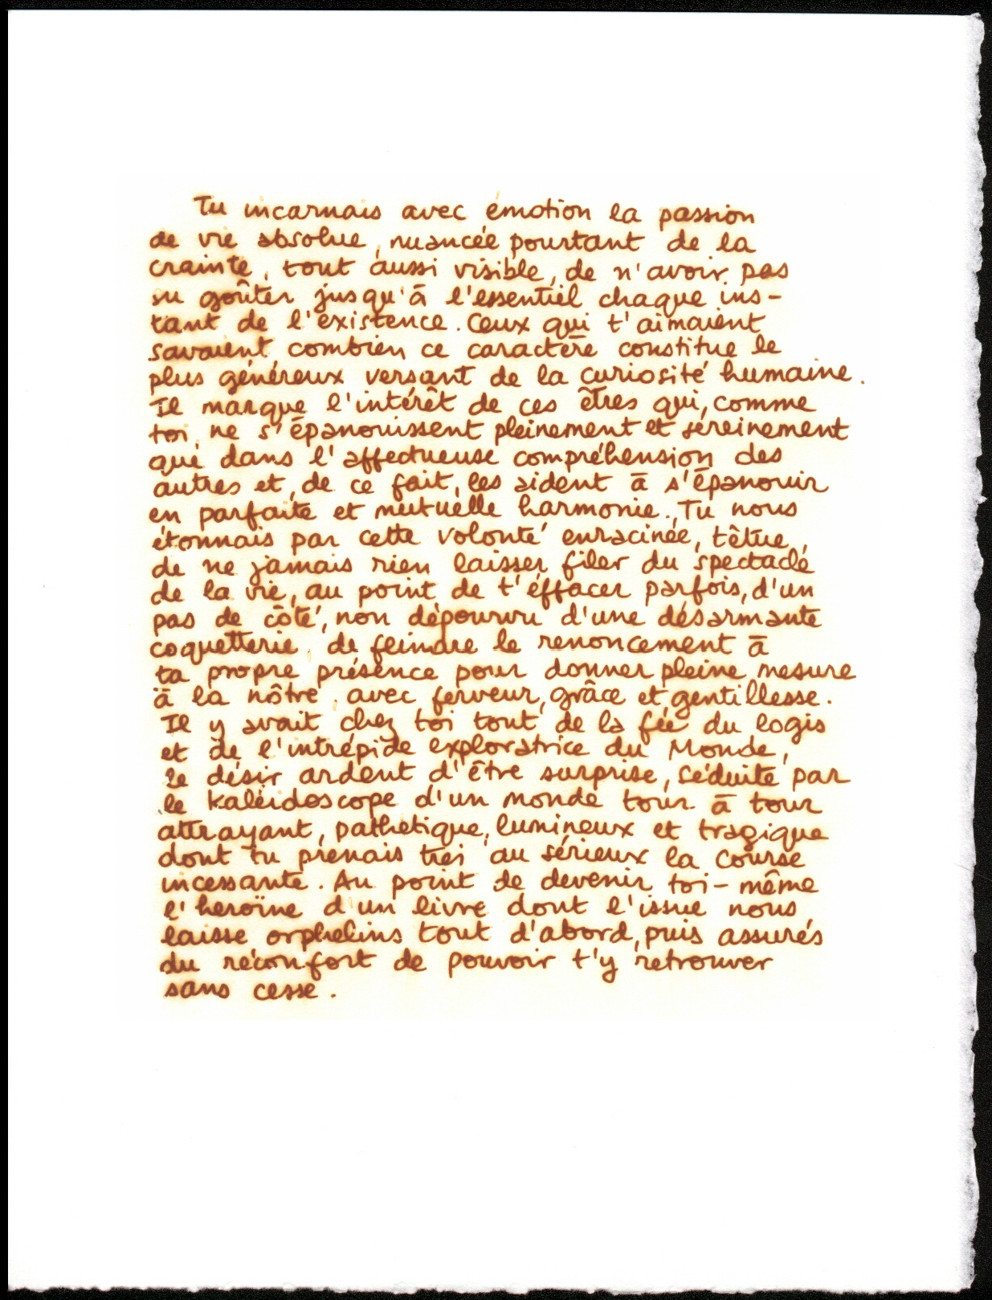 Tu incarnais avec émotion la passion
de vie absolue, nuancée pourtant de la
crainte, tout aussi visible, de n'avoir pas
su goûter jusqu'à l'essentiel chaque ins-
tant de l'existence. Ceux qui t'aimaient
savaient combien ce caractère constitue le
plus généreux versant de la curiosité humaine.
Il marque l'intérêt de ces êtres qui, comme
toi, ne s'épanouissent pleinement et sereinement
que dans l'affectueuse compréhension des
autres et, de ce fait, les aident à s'épanouir
en parfaite et mutuelle harmonie. Tu nous
étonnais par cette volonté enracinée, têtue,
de ne jamais rien laisser filer du spectacle
de la vie, au point de t'effacer parfois, d'un
pas de côté, non dépourvu d'une désarmante
coquetterie, de feindre le renoncement à
ta propre présence pour donner pleine mesure
à la nôtre avec ferveur, grâce et gentillesse.
Il y avait chez toi tout de la fée du logis
et de l'intrépide exploratrice du Monde,
le désir ardent d'être surprise, séduite par
le kaléidoscope d'un monde tour à tour
attrayant, pathétique, lumineux et tragique
dont tu prenais très au sérieux la course
incessante. Au point de devenir toi-même
l'héroïne d'un livre dont l'issue nous
laisse orphelins tout d'abord, puis assurés
du réconfort de pouvoir t'y retrouver
sans cesse.